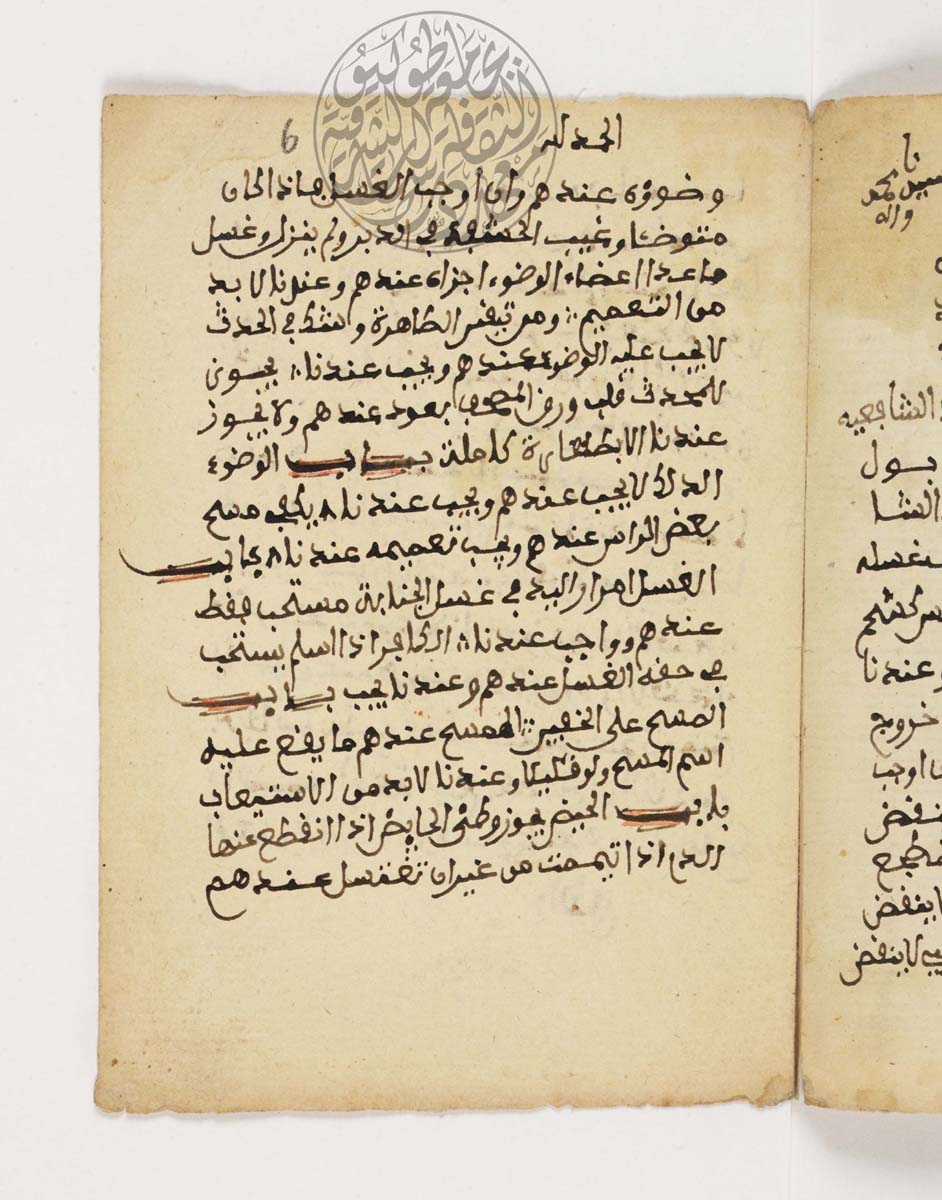 الحمد لله
6
وضوؤه عندهم وان اوجب الغسل فاذا كان
متوضئا وغيب الحشفة في الدبر ولم ينزل وغسل
ما عدا اعضاء الوضوء اجزاه عندهم وعندنا لا بد
من التعميم ومن تيقن الطاهرة والشك في الحدث
لا يجب عليه الوضوء عندهم ويجب عندنا يجوز
للمحدث قلب ورق المصحف بعود عندهم ولا يجوز
عندنا الا بطهارة كاملة باب الوضوء
الدلك لا يجب عندهم ويجب عندنا يكفي مسح
بعض الراس عندهم ويجب تعميمه عندنا باب
الغسل امرار اليد في غسل الجنابة مستحب فقط
عندهم وواجب عندنا الكافر اذا اسلم يستحب
في حقه الغسل عندهم وعندنا يجب باب
المسح على الخفين المسح عندهم ما يقع عليه
اسم المسح ولو قليلا وعندنا لا بد من الاستيعاب
باب الحيض يجوز وطئ الحايض اذا انقطع عنها
الدم اذا تيممت من غير ان تغتسل عندهم
نا
والله
الشافعيه
بول
الشا
وعندنا
خروج
اوجب
ينقض
لا ينقض